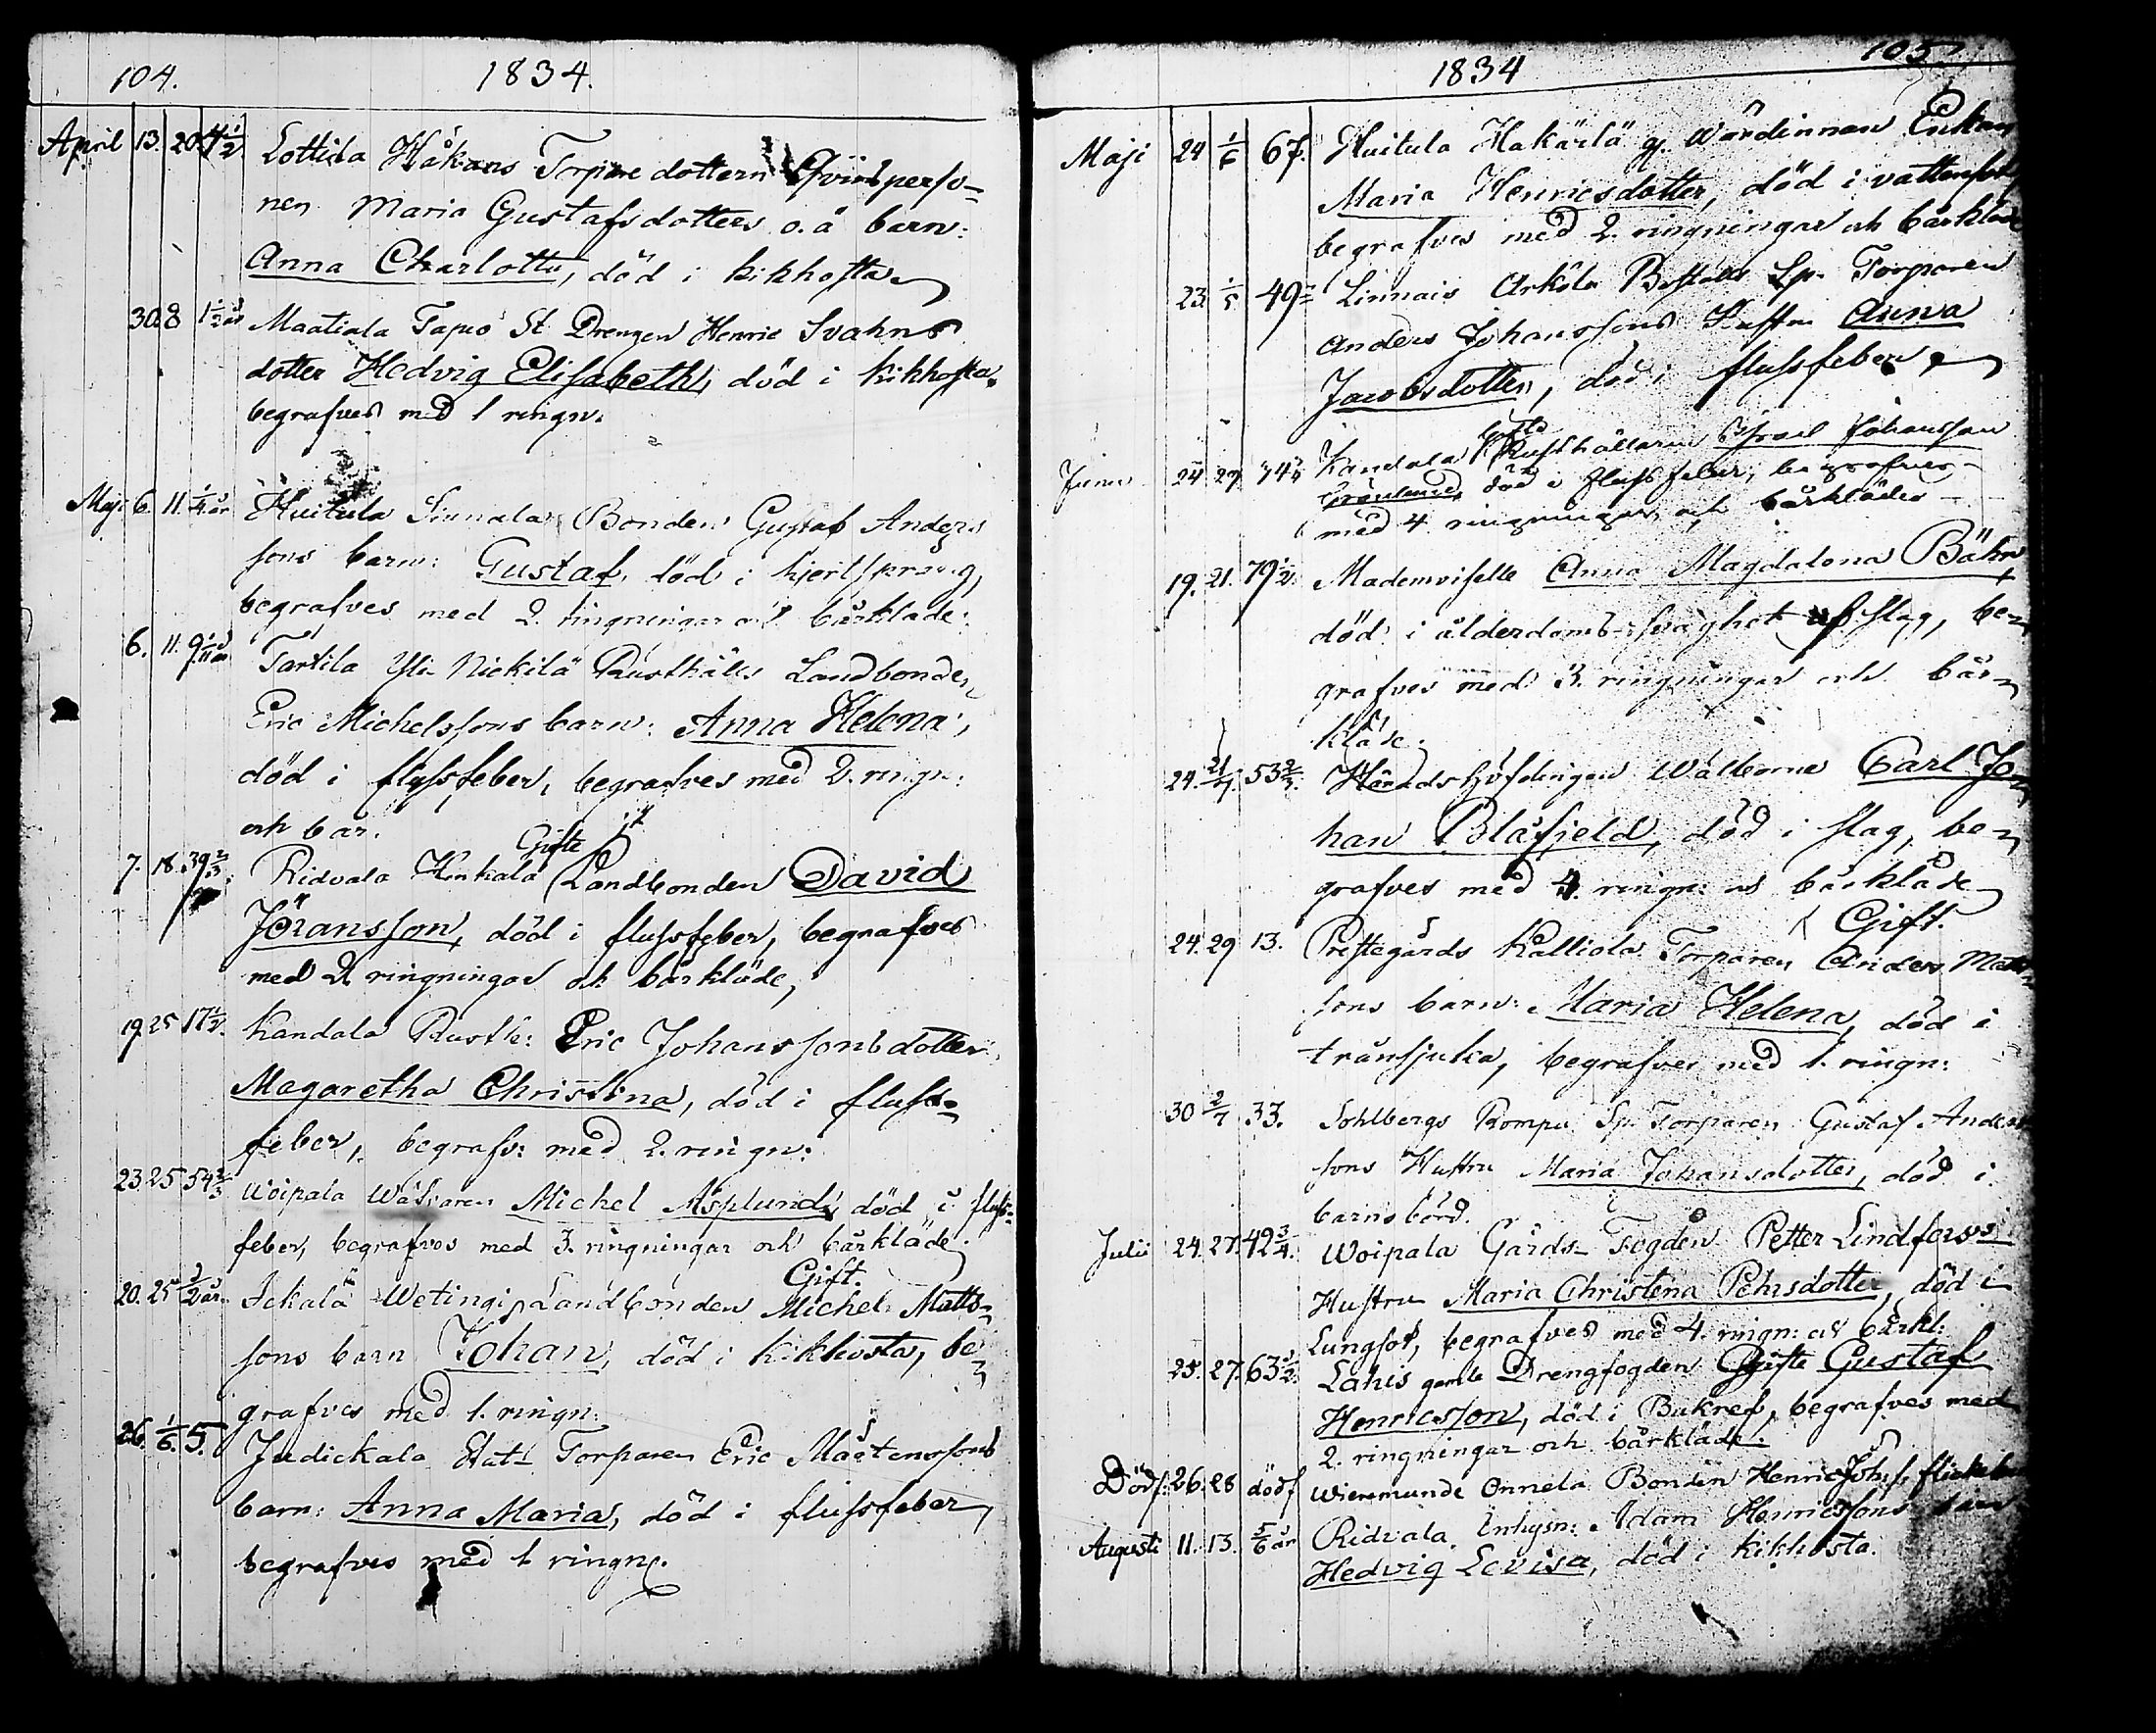 104. 1834.
April 13. 20. 4 1/2 Lottila Håkans Torpare dottern Qvinsperso-
nen Maria Gustafsdotters o.ä barn:
Anna Charlotta, död i kikhosta
30. 8 1 1/2 år Maatiala Tapio St Drengen Henric Svahns
dotter Hedvig Elisabeth, död i kikhosta.
begrafves med 1 ringn.
Maji 6. 11. 1/4 år Huitula Sinnala Bonden Gustaf Anders
sons barn: Gustaf, död i hjertsprång,
begrafves med 2. ringningar och bårkläde:
6. 11. 9/11 år Tarttila Yli Nickilä Rusthålls Landbonden
Eric Michelssons barn: Anna Helena,
död i flussfeber, begrafves med 2. ringn:
och bår.
Gifte
7. 18. 39 2/3. Ridvala Kinkala Landbonden David
Jöransson, död i flussfeber, begrafves
med 2 ringningar och bårkläde,
19. 25 17 1/2. Kandala Rusth: Eric Johanssons dotter
Magaretha Christina, död i fluss-
feber, begrafv: med 2. ringn:
23. 25 54 2/3 Woipala Wäfvaren Michel Asplund, död i fluss-
feber, begrafves med 3. ringningar och bårkläde.
Gift.
20. 25 1/2 år. Ickala Wetingi Landbonden Michel Matts-
sons barn Johan, död i kikhosta, be-
grafves med 1. ringn:
26. 1/6. 5. Judickala Torparen Eric Mårtenssons
barn: Anna Maria, död i flussfeber,
begrafves med 1 ringn.
105.
1834
Maji 24 1/6 67. Huitula Hakärlä g. Wärdinnan Enkan
Maria Henricsdotter, död i vattensot,
begrafves med 2. ringningar och bårkläde
23. 1/5 49 Linnais Arkila Bostäls Sp. Torparen
Anders Johanssons Hustru Anna
Jacobsdotter, död i flussfeber
Gifte
Junii 24 27 74 Kandala Rusthållaren Israel Johansson
Grönlund, död i flussfeber, begrafves
med 4 ringningar och bårkläde
19. 21. 79 1/2. Mademoiselle Anna Magdalena Bähr,
död i ålderdoms svaghet af slag, be-
grafves med 3. ringningar och bår-
kläde.
24. 21/7. 53 2/3. Häradshöfdingen Wälborne Carl Jo-
han Blåfjeld, död i slag, be-
grafves med 4. ringn: och bårkläde
Gift.
24. 29 13. Prestegårds Kalliola Torparen Anders Matts-
sons barn: Maria Helena, död i
trånsjuka, begrafves med 1. ringn:
30 2/7 33. Sohlbergs Rompu Sp. Torparen Gustaf Anders
sons Hustru Maria Johansdotter, död i
barnsbörd.
Julii 24. 27. 42 3/4. Woipala Gårds-Fogden Petter Lindfors
Hustru Maria Christina Pehrsdotter, död i
Lungsot, begrafves med 4. ringn: och bårkl:
25. 27. 63 1/2. Lahis gamle Drengfogden Gifte Gustaf
Henricsson, död i Bukref, begrafves med
2. ringningar och bårkläde.
Dödf: 26. 28 dödf Wieremunde Onnela Bonden Henric Johsf: flicka
Augusti 11. 13. 5/6 år Ridvala Inhysn: Adam Henricssons barn
Hedvig Lovisa, död i kikhosta.